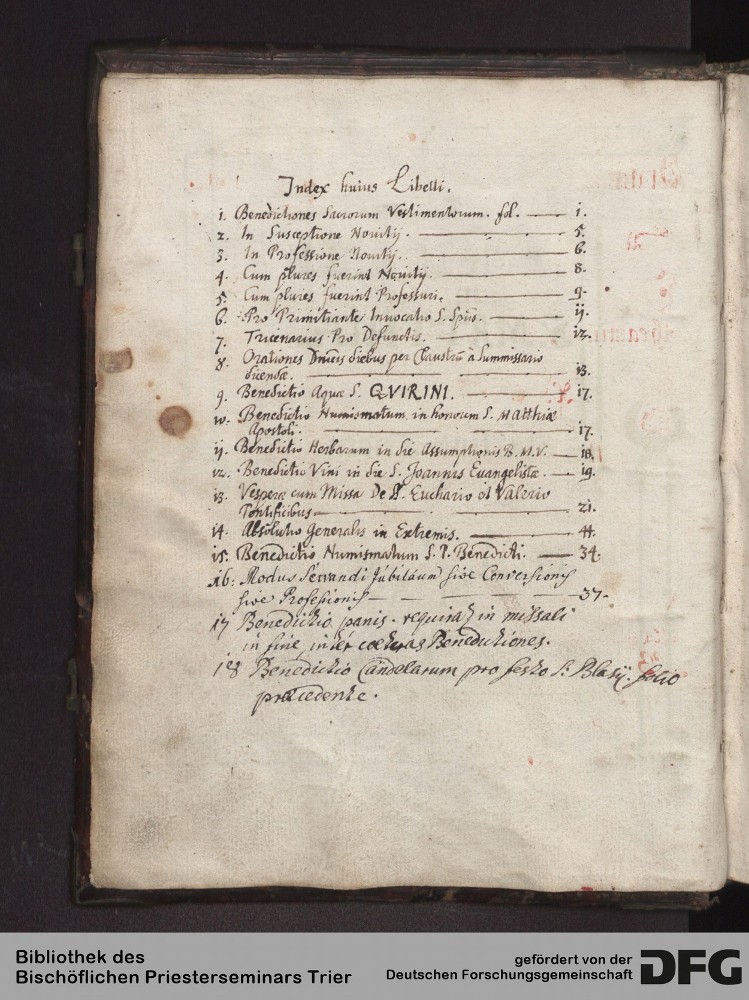 Index huius Libelli.
1. Benedictiones Sacrorum Vestimentorum. fol. — 1.
2. In Susceptione Novitij. — 5.
3. In Professione Novitij. — 6.
4. Cum plures fuerint Novitij. — 8.
5. Cum plures fuerint Professuri. — 9.
6. Pro Primitiante Invocatio S. Spūs. — ij.
7. Tricenarius Pro Defunctis. — 12.
8. Orationes diebus per Claustrū à Summissario
dicendæ. — 13.
9. Benedictio Aquæ S. QVIRINI. — 17.
10. Benedictio Numismatum in honorem S. Matthiæ
Apostoli. — 17.
ij. Benedictio Herbarum in die Assumptionis B. M. V. — 18.
12. Benedictio Vini in die S. Joannis Euangelistæ. — 19.
13. Vesperæ cum Missa De S. Euchario et Valerio
Pontificibus — 21.
14. Absolutio Generalis in Extremis. — 44.
15. Benedictio Numismatum S. P. Benedicti. — 34.
16: Modus Servandi Jubilæum sive Conversionis
sive Professionis — 37.
17 Benedictio panis. requirat in missali
in fine inter cœteras Benedictiones.
18 Benedictio Candelarum pro festo S. Blasij. folio
præcedente.
Bibliothek des
Bischöflichen Priesterseminars Trier
gefördert von der
Deutschen Forschungsgemeinschaft
DFG